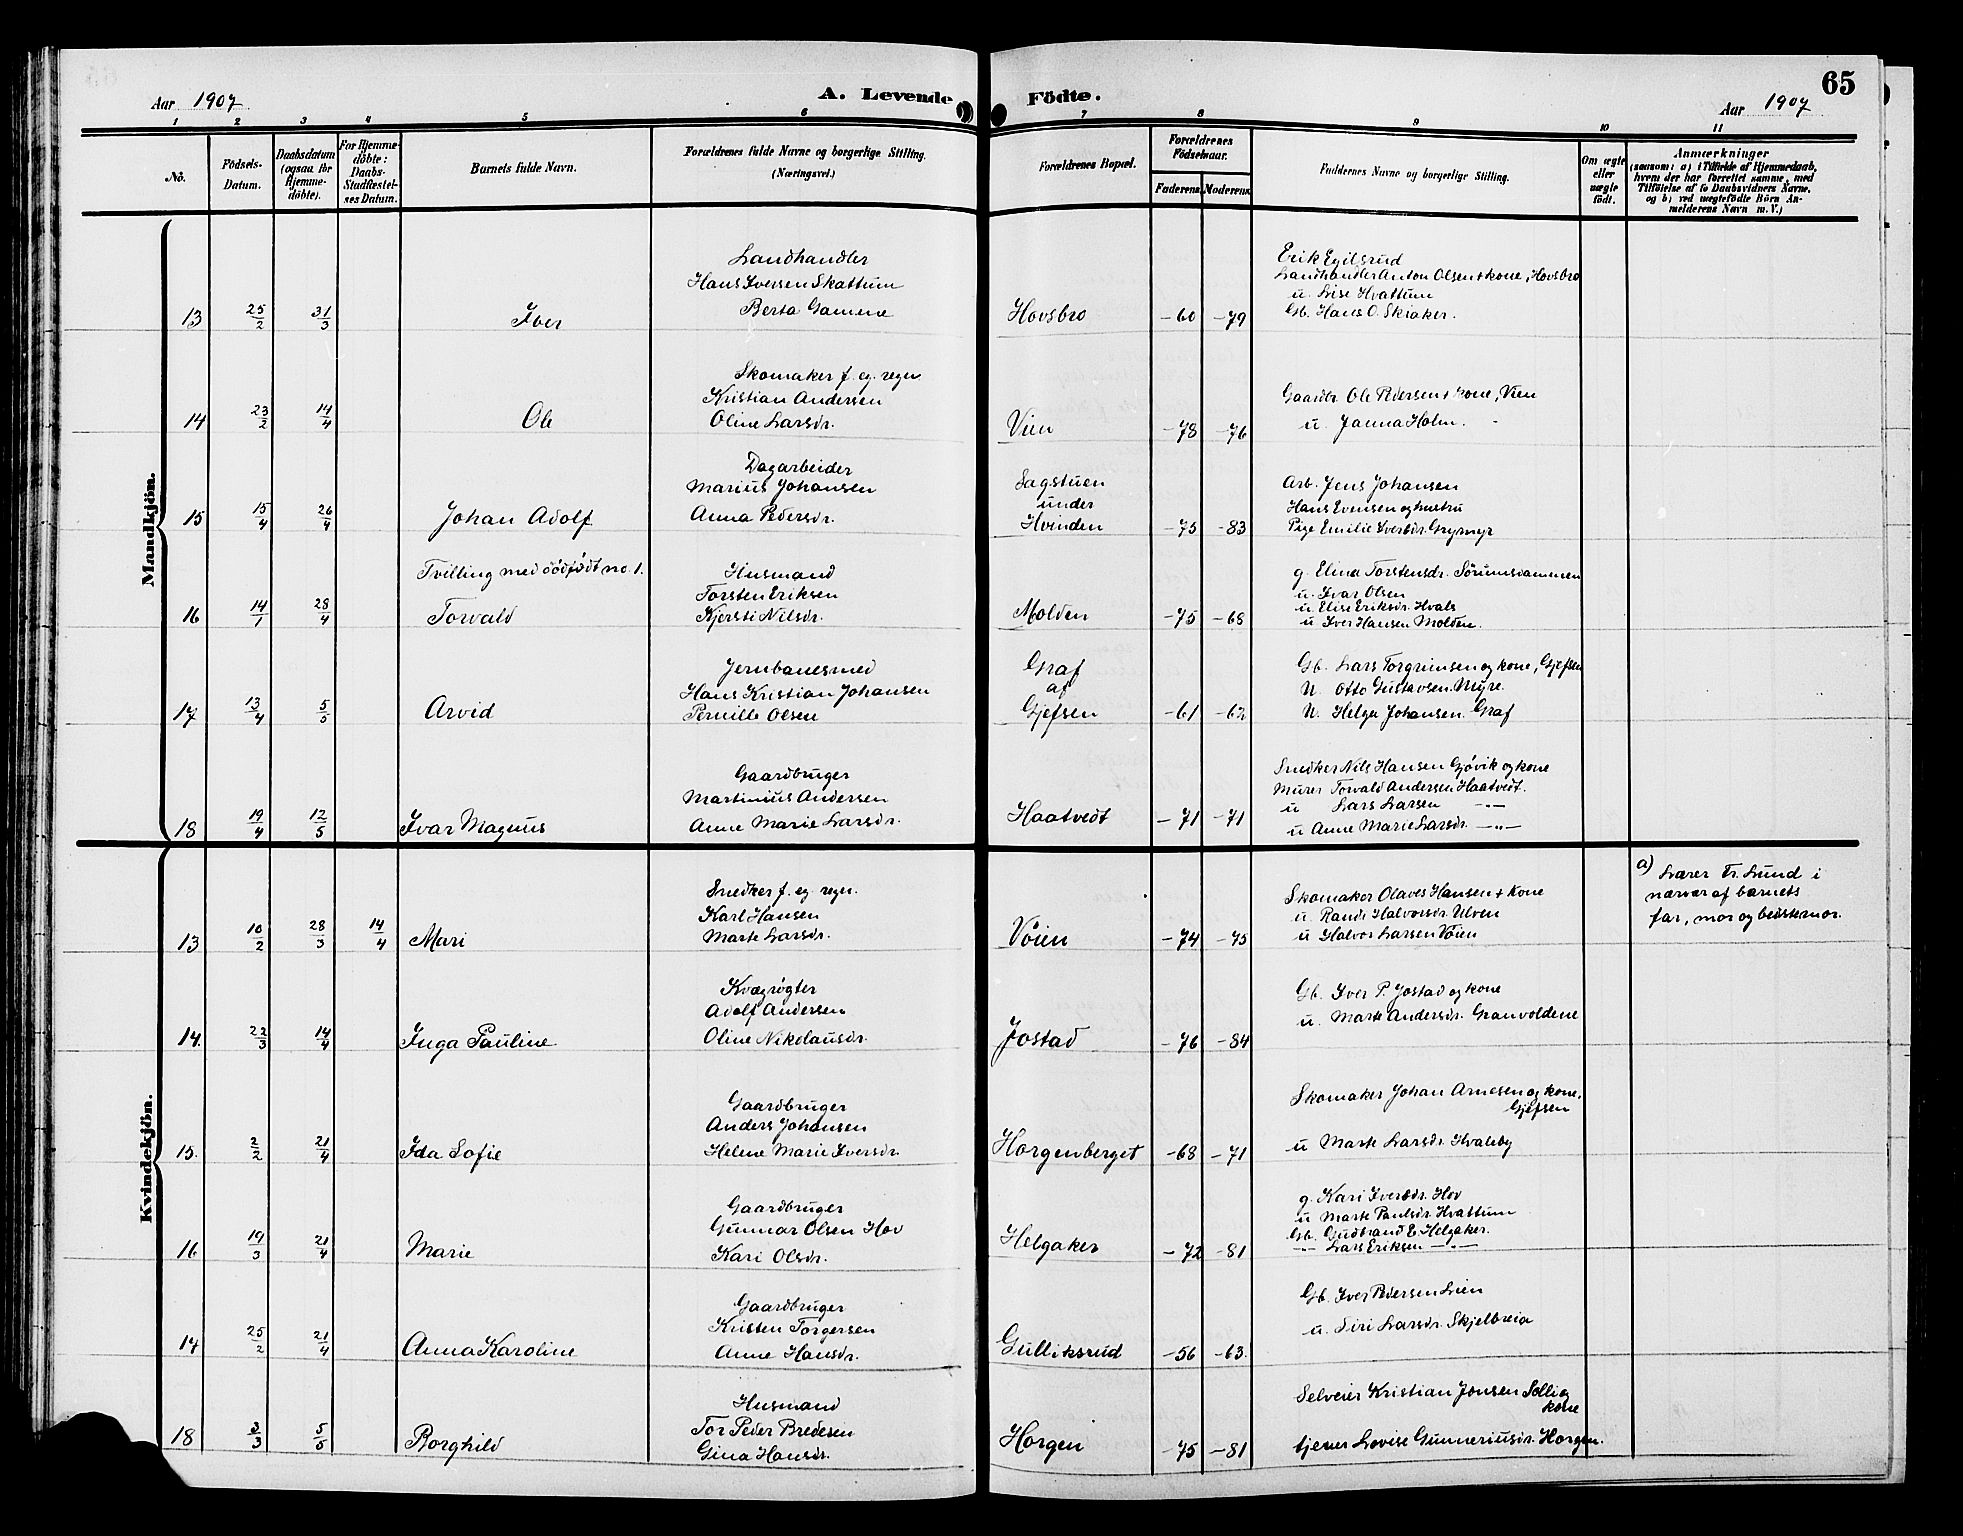 65
Aar 1907
A. Levende
Födte.
Aar 1907
1 2 3 4 5 6 7 8 9 10 11
No.
Födsels-Datum.
Daabsdatum (ogsaa for Hjemme-döbte).
For Hjemme-döbte: Daabs-Stadfæstel-ses Datum.
Barnets fulde Navn.
Forældrenes fulde Navne og borgerlige Stilling.
(Næringsvei.)
Forældrenes Bopæl.
Forældrenes Födselsaar.
Faderens. Moderens.
Faddernes Navne og borgerlige Stilling.
Om ægte eller uægte födt.
Anmærkninger
(saasom: a) i Tilfælde af Hjemmedaab,
hvem der har forrettet samme, med
Tilföielse af to Daabsvidners Navne,
og b) ved uægtefödte Börn An-
melderens Navn m. V.)
Mandkjön.
Landhandler
Hans Iversen Skattum
13 25/2 31/3 Iver Berta Gamene Hovsbro -60 -79
Erik Egilsrud
Landhandler Anton Olsen + kone, Hovsbro
u. Lise Hvattum
Gb. Hans O. Skiaker.
Skomaker f. eg. regn
Kristian Andersen
14 23/2 14/4 Ole Oline Larsdr. Vien -78 -76
Gaardbr. Ole Pedersen + kone, Vien
u. Janna Holm.
Dagarbeider
Marius Johansen
15 15/4 26/4 Johan Adolf Anna Pedersdr.
Sagstuen
under
Hvinden -75 -83
Arb. Jens Johansen
Hans Evensen og hustru
Pige Emilie Iversdr. Grymyr
Tvilling med dödfödt no 1.
Husmand
Torsten Eriksen
16 14/1 28/4 Torvald Kjersti Nilsdr. Molden -75 -68
g. Elina Torstensdr. Sørumsdammen
u. Ivar Olsen
u. Elise Eriksdr. Hvals
u Iver Hansen Molden.
Jernbanesmed
Hans Kristian Johansen
17 13/4 5/5 Arvid Pernille Olsen
Graf
af
Gjefsen -61 -62
Gb. Lars Torgrimsen og kone, Gjefsen
U. Otto Gustavsen. Myre.
U. Helga Johansen. Graf
Gaardbruger
Martinius Andersen
18 19/4 12/5 Ivar Magnus Anne Marie Larsdr. Haatvedt -71 -71
Snedker Nils Hansen Gjøvik og kone
Murer Torvald Andersen Haatvedt.
u Lars Larsen —"—
u Anne Marie Larsdr. —"—
Kvindekjön.
Snedker f. eg. regn.
Karl Hansen
13 10/2 28/3 14/4 Mari Marte Larsdr. Vøien -74 -75
Skomaker Olaves Hansen + kone
u. Randi Halvorsdr. Ulven
u Halvor Larsen Vøien
a) Lærer Fr. Lund i
nærvær af barnets
far, mor og bedstemor.
Kvægrøgter
Adolf Andersen
14. 22/3 14/4 Inga Pauline Oline Nikolausdr. Jostad -76 -84
Gb. Iver P. Jostad og kone
u. Marte Andersdr. Granvoldene
Gaardbruger
Anders Johansen
15. 2/2 21/4 Ida Sofie Helene Marie Iversdr. Horgenberget -68 -71
Skomaker Johan Arnesen og kone,
Gjefsen
u Marte Larsdr. Hvaleby
Gaardbruger
Gunnar Olsen Hov
16 19/3 21/4 Marie Kari Olsdr. Helgaker -72 -81
g. Kari Iversdr. Hov
u Marte Paulsdr. Hvattum
Gb. Gudbrand E. Helgaker.
—"— Lars Eriksen —"—
Gaardbruger
Kristen Torgersen
17 25/2 21/4 Anna Karoline Anne Hansdr. Gulliksrud -56 -63.
Gb. Iver Pedersen Lien
u. Siri Larsdr. Skjelbreia
Husmand
Tor Peder Bredesen
18 3/3 5/5 Borghild Gina Hansdr. Horgen -75 -81
Selveier Kristian Jonsen Sølli og
kone
tjener Lovise Gunneriusdr. Horgen.